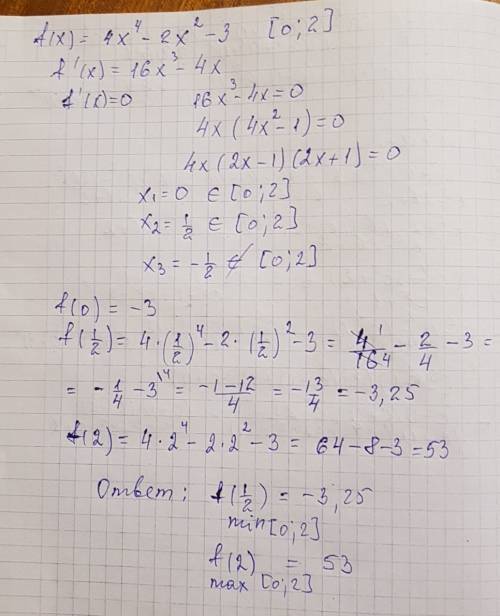 f(x) = 4x⁴ - 2x² - 3 [0;2]
f'(x) = 16x³ - 4x
f'(x)=0 16x³ - 4x = 0
4x (4x² - 1) = 0
4x (2x - 1) (2x + 1) = 0
x₁ = 0 ∈ [0;2]
x₂ = 1/2 ∈ [0;2]
x₃ = - 1/2 ∉ [0;2]
f(0) = -3
f(1/2) = 4·(1/2)⁴ - 2·(1/2)² - 3 = 4¹/16₄ - 2/4 - 3 =
= - 1/4 - 3^4 = (-1-12)/4 = -13/4 = -3,25
f(2) = 4·2⁴ - 2·2² - 3 = 64 - 8 - 3 = 53
Ответ: f(1/2) = -3,25
min [0;2]
f(2) = 53
max [0;2]